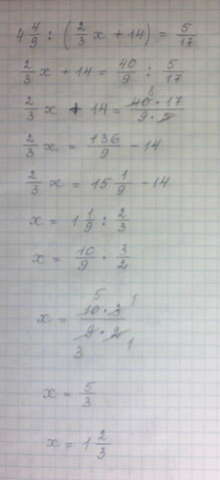 4 4/9 : (2/3 x + 14) = 5/17
2/3 x + 14 = 40/9 : 5/17
2/3 x + 14 = 8 40 · 17 / 9 · 5
2/3 x = 136/9 - 14
2/3 x = 15 1/9 - 14
x = 1 1/9 : 2/3
x = 10/9 · 3/2
x = 5 10 · 3 1 / 3 9 · 2 1
x = 5/3
x = 1 2/3